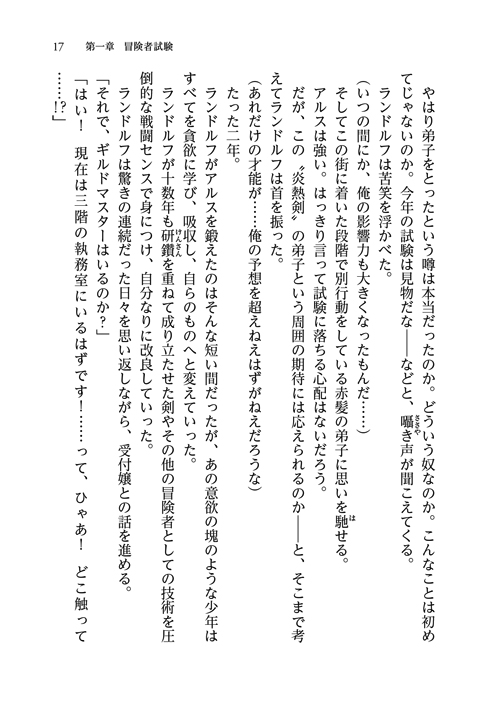 17　第一章　冒険者試験
　やはり弟子をとったという噂は本当だったのか。どういう奴なのか。こんなことは初め
てじゃないのか。今年の試験は見物だな――などと、囁き声が聞こえてくる。
　ランドルフは苦笑を浮かべた。
（いつの間にか、俺の影響力も大きくなったもんだ……）
　そしてこの街に着いた段階で別行動をしている赤髪の弟子に思いを馳せる。
　アルスは強い。はっきり言って試験に落ちる心配はないだろう。
　だが、この〝炎熱剣〟の弟子という周囲の期待には応えられるのか――と、そこまで考
えてランドルフは首を振った。
（あれだけの才能が……俺の予想を超えねえはずがねえだろうな）
　たった二年。
　ランドルフがアルスを鍛えたのはそんな短い間だったが、あの意欲の塊のような少年は
すべてを貪欲に学び、吸収し、自らのものへと変えていった。
　ランドルフが十数年も研鑽を重ねて成り立たせた剣やその他の冒険者としての技術を圧
倒的な戦闘センスで身につけ、自分なりに改良していった。
　ランドルフは驚きの連続だった日々を思い返しながら、受付嬢との話を進める。
「それで、ギルドマスターはいるのか？」
「はい！　現在は三階の執務室にいるはずです！……って、ひゃあ！　どこ触って
……!?」